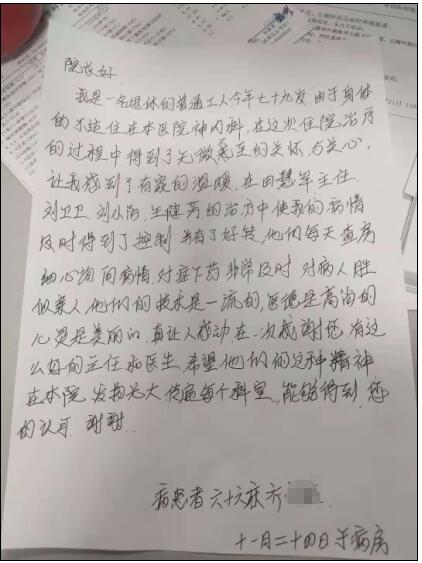 院长好
我是一名退休的普通工人今年七十九岁,由于身体
的不适住在本医院神内科,在这次住院治疗
的过程中得到了无微不至的关怀与关心,
让我感到了有家的温暖,在田慧军主任
刘卫卫、刘从、王健芳的治疗中使我的病情
及时得到了控制并有了好转,他们每天查房
细心询问病情,对症下药非常及时对病人胜
似亲人,他们的技术是一流的,医德是高尚的
心灵是美丽的,真让人感动在一次感谢您有这
么好的主任和医生,希望他们的这种精神
在本院发扬光大传遍每个科室,能够得到您
的认可 谢谢
病患者六十六床齐
十一月二十四日于病房